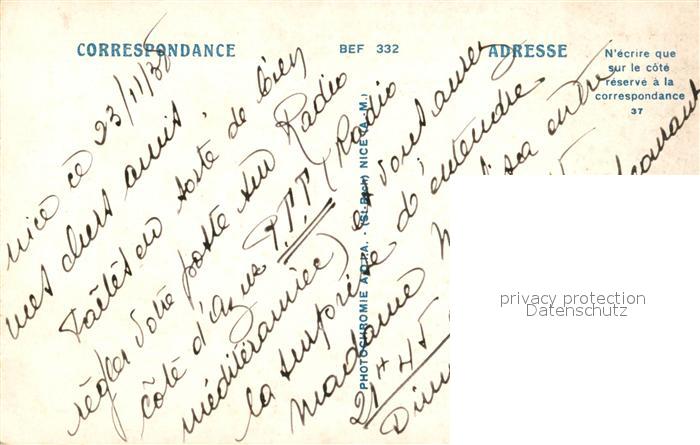 CORRESPONDANCE
BEF 332
ADRESSE
N'écrire que
sur le côté
réservé à la
correspondance
37
PHOTOCHROMIE A.D.I.A. - (St-Roch) NICE (A.-M.)
Nice ce 23/11/38
mes chers amis,
Faites en sorte de bien
régler votre poste sur Radio
côte d'Azur P.T.T (Radio
méditerannée) et vous aurez
la surprise d'entendre
Madame entre
21H 45
courant
Dim
privacy protection
Datenschutz